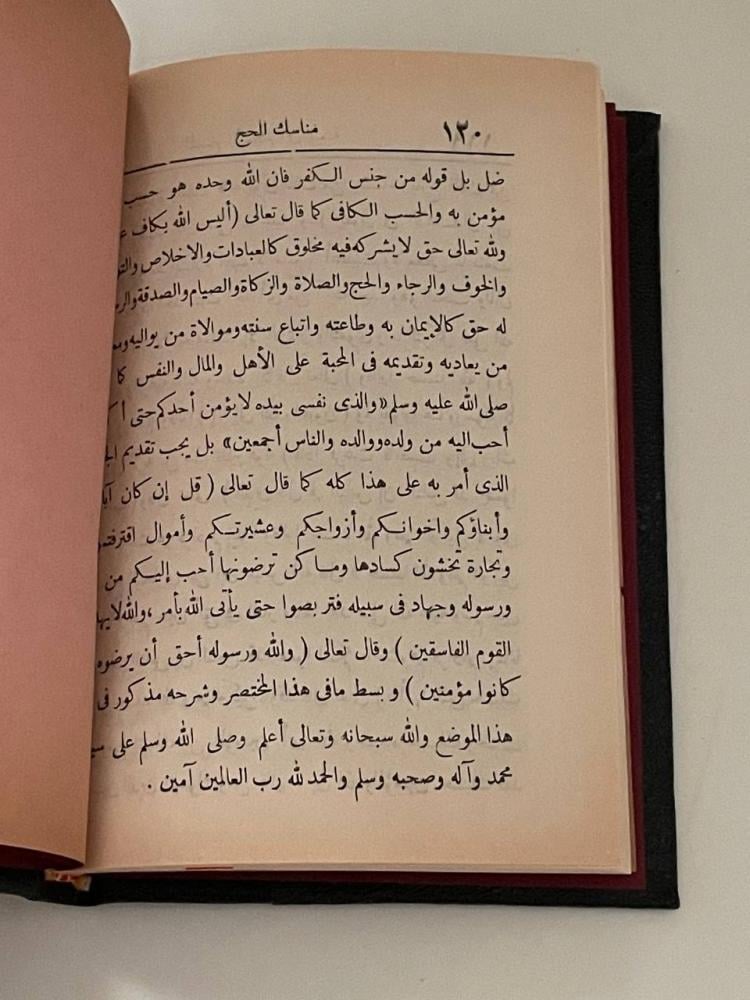 ١٢٠ مناسك الحج
ضل بل قوله من جنس الكفر فان الله وحده هو حسب
مؤمن به والحسب الكافى كما قال تعالى (أليس الله بكاف
ولله تعالى حق لايشركه فيه مخلوق كالعبادات والاخلاص
والخوف والرجاء والحج والصلاة والزكاة والصيام والصدقة
له حق كالإيمان به وطاعته واتباع سنته وموالاة من يواليه
من يعاديه وتقديمه فى المحبة على الأهل والمال والنفس كما
صلى الله عليه وسلم «والذى نفسى بيده لايؤمن أحدكم حتى
أحب اليه من ولده ووالده والناس أجمعين» بل يجب تقديم
الذى أمر به على هذا كله كما قال تعالى ( قل إن كان
وأبناؤكم واخوانكم وأزواجكم وعشيرتكم وأموال
وتجارة تخشون كسادها ومساكن ترضونها أحب إليكم من
ورسوله وجهاد فى سبيله فتربصوا حتى يأتى الله بأمره ،والله
القوم الفاسقين ) وقال تعالى ( والله ورسوله أحق أن يرضوه
كانوا مؤمنين ) وبسط مافى هذا المختصر وشرحه مذكور فى
هذا الموضع والله سبحانه وتعالى أعلم وصلى الله وسلم على
محمد وآله وصحبه وسلم والحمد لله رب العالمين آمين .